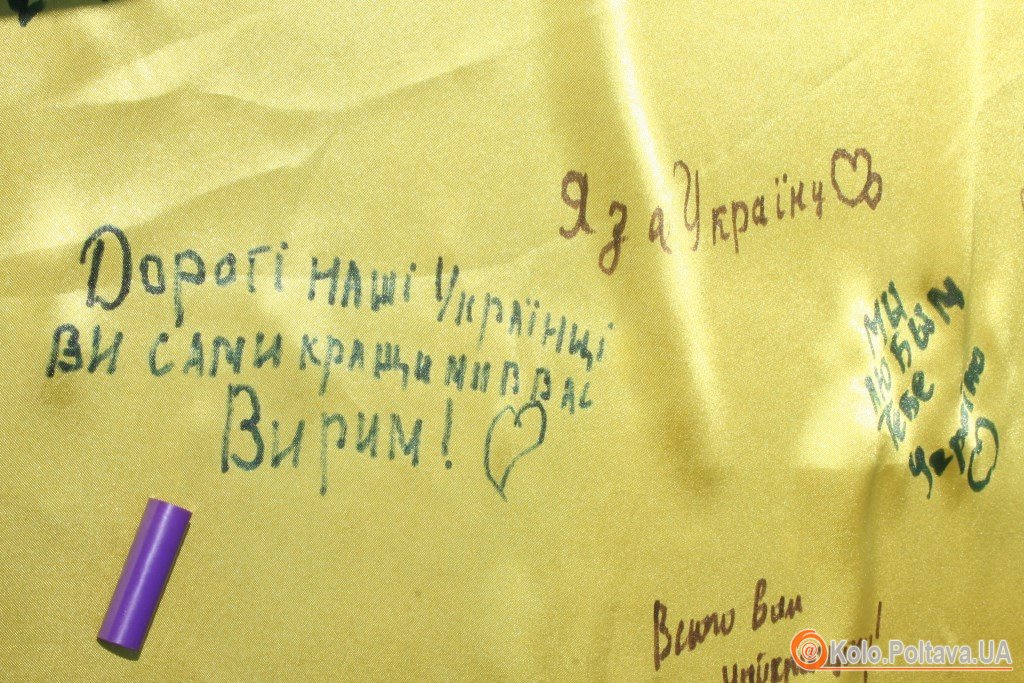 Я за Україну
Дорогі наші Українці
ви сами кращи ми в вас
Вирим!
МИ
ЛЮБЫМ
тебе
Україно
Всього вам
найкращого!
@Kolo.Poltava.UA